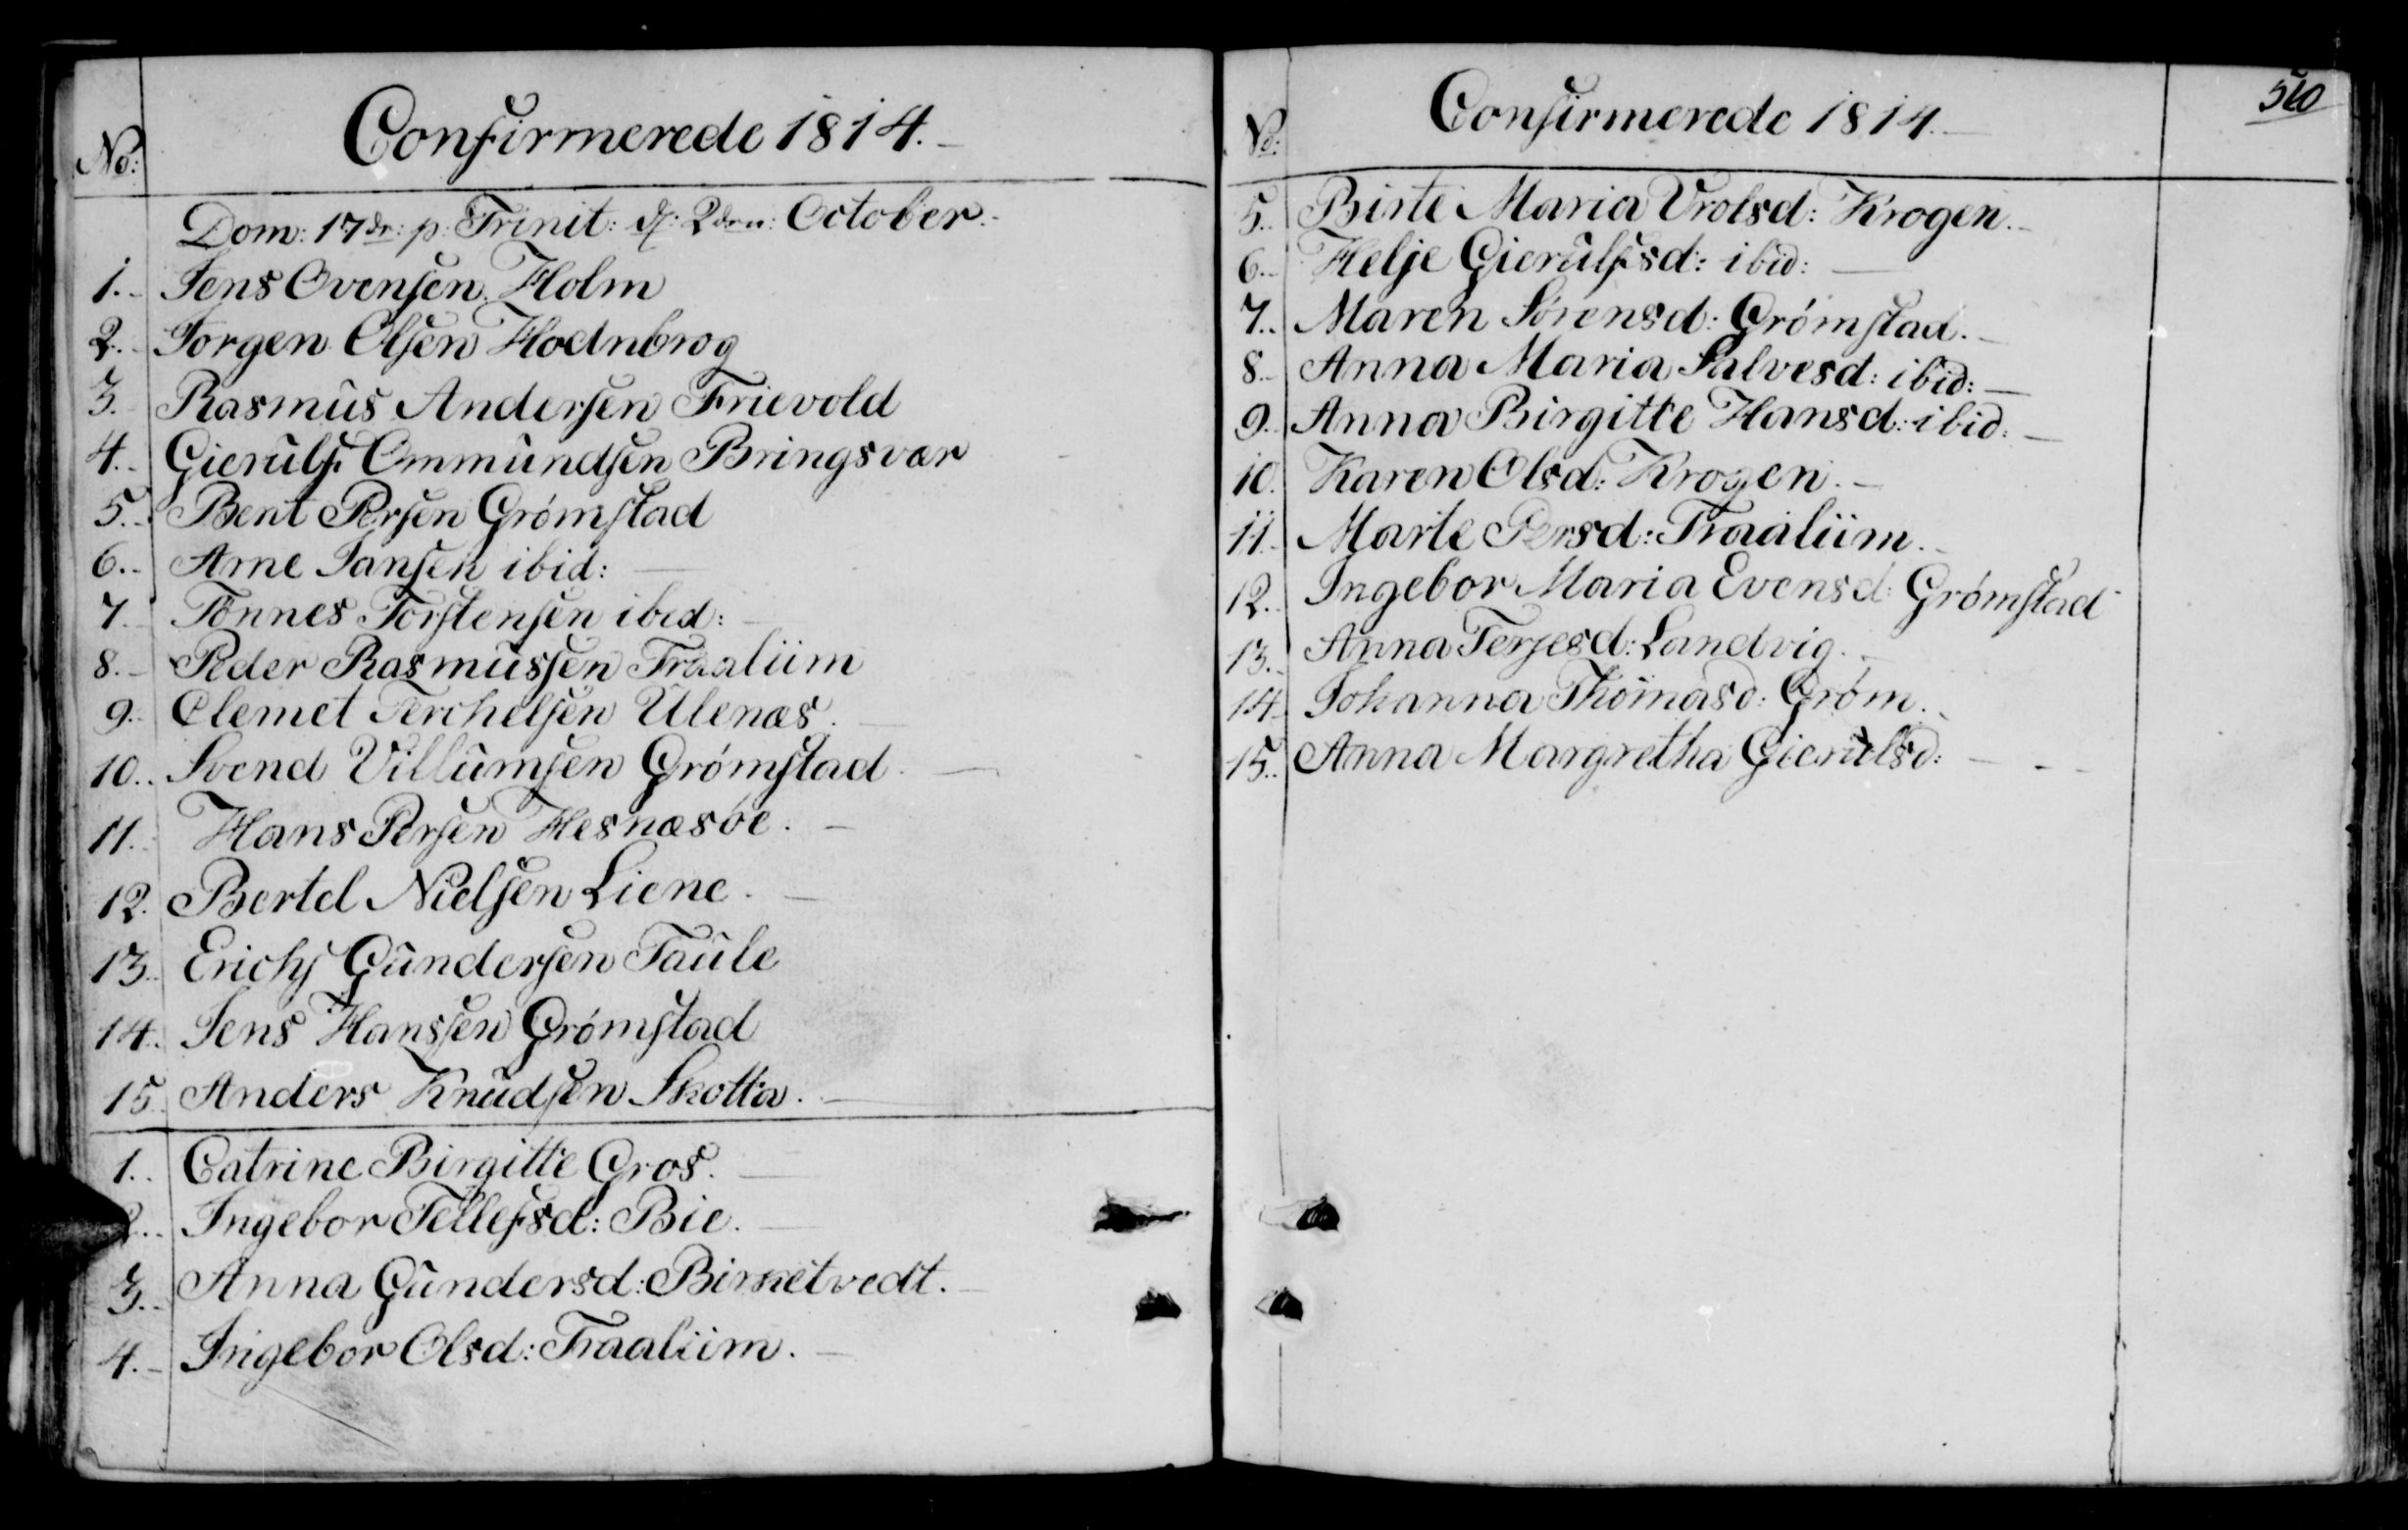 Confirmerede 1814.
No:
Dom: 17de: p: Trinit: d: 2den: October.
1. Jens Ovensen Holm
2. Jorgen Olsen Hodnbrog
3. Rasmus Andersen Frievold
4. Gierulf Ommundsen Bringsvær
5. Bent Persen Grømstad
6. Arne Jansen ibid:
7. Tønnes Torstensen ibid:
8. Peder Rasmussen Traalum
9. Clemet Terchelsen Ulenæs.
10. Svend Villumsen Grømstad.
11. Hans Persen Hesnæsøe.
12. Bertel Nielsen Liene.
13. Erich Gundersen Taule
14. Jens Hanssen Grømstad
15. Anders Knudsen Skotta.
1. Catrine Birgitte Gros.
2. Ingebor Tellefsd: Bie.
3. Anna Gundersd: Birketvedt.
4. Ingebor Olsd: Traalum.
510
Confirmerede 1814.
No:
5. Birte Maria Vrolsd: Krogen.
6. Helje Gierulfsd: ibid:
7. Maren Sørensd: Grømstad.
8. Anna Maria Salvesd: ibid:
9. Anna Birgitte Hansd: ibid:
10. Karen Olsd: Krogen.
11. Marte Persd: Traalum.
12. Ingebor Maria Evensd: Grømstad
13. Anna Terjesd: Landvig.
14. Johanna Thomasd: Grøm.
15. Anna Margretha Gierulsd: